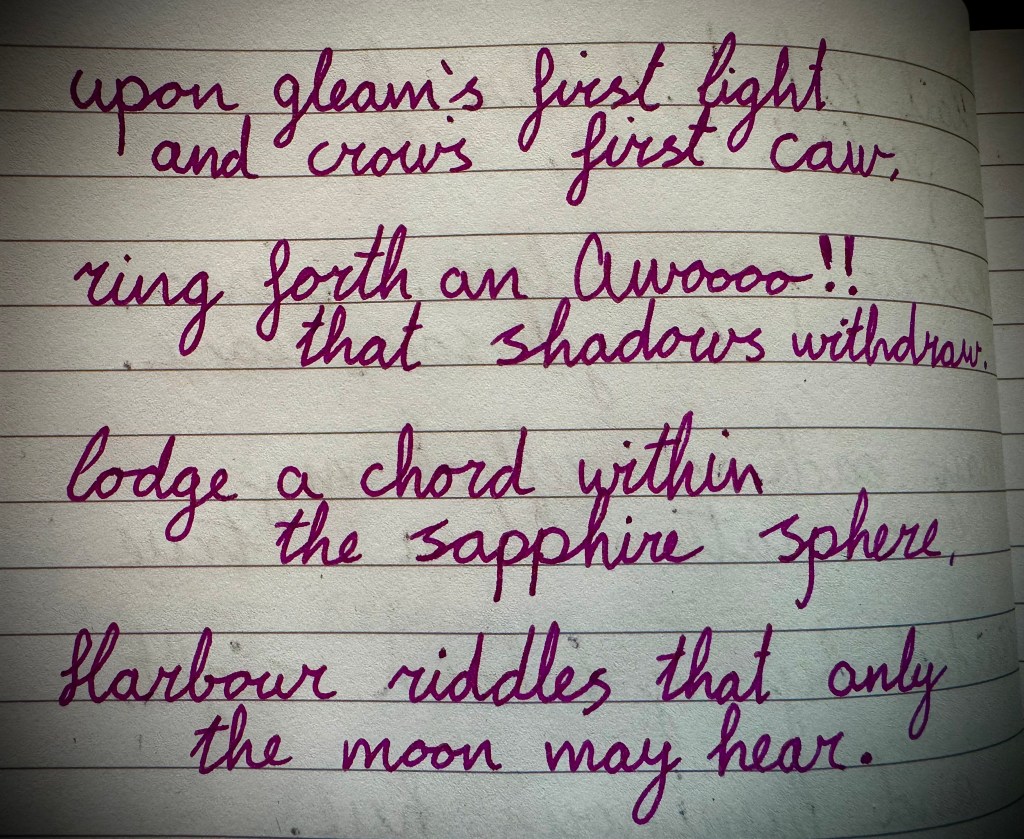 upon gleam's first light
and crow's first caw,
ring forth an Awoooo!!
that shadows withdraw.
lodge a chord within
the sapphire sphere,
Harbour riddles that only
the moon may hear.